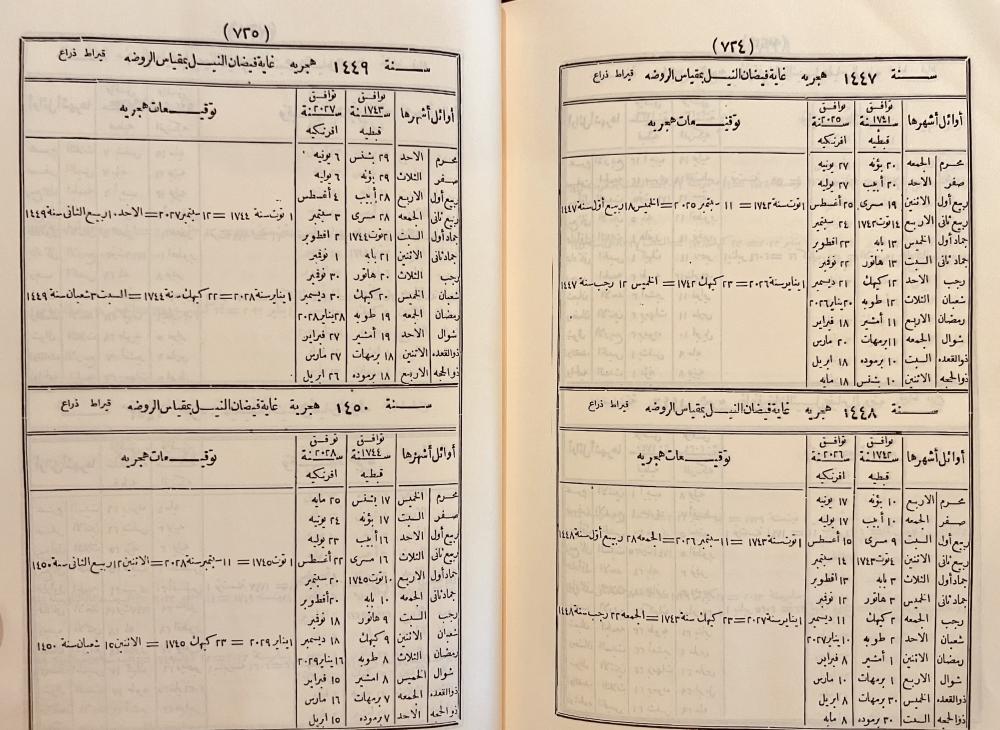 (٧٢٤)
سنة ١٤٤٧ هجريه غاية فيضان النيل بمقياس الروضه قيراط ذراع
أوائل أشهرها توافق سنة ١٧٤١ قبطيه توافق سنة ٢٠٢٥ افرنكيه توقيعات هجريه
محرم الجمعه ٢٠ بؤنه ٢٧ يونيه
صفر الاحد ٢٠ أبيب ٢٧ يوليه
ربيع أول الاثنين ١٩ مسرى ٢٥ أغسطس ١ توت سنة ١٧٤٢ = ١١ سبتمبر ٢٠٢٥ = الخميس ١٨ ربيع أول سنة ١٤٤٧
ربيع ثانى الاربع ١٤ توت ١٧٤٢ ٢٤ سبتمبر
جماد أول الخميس ١٣ بابه ٢٣ اقطوبر
جماد ثانى السبت ١٣ هاتور ٢٢ نوفبر
رجب الاحد ١٢ كيهك ٢١ ديسمبر ١ يناير سنة ٢٠٢٦ = ٢٣ كيهك ١٧٤٢ = الخميس ١٢ رجب سنة ١٤٤٧
شعبان الثلاث ١٢ طوبه ٢٠ يناير ٢٠٢٦
رمضان الاربع ١١ أمشير ١٨ فبراير
شوال الجمعه ١١ برمهات ٢٠ مارس
ذوالقعده السبت ١٠ برموده ١٨ ابريل
ذوالحجه الاثنين ١٠ بشنس ١٨ مايه
سنة ١٤٤٨ هجريه غاية فيضان النيل بمقياس الروضه قيراط ذراع
أوائل أشهرها توافق سنة ١٧٤٢ قبطيه توافق سنة ٢٠٢٦ افرنكيه توقيعات هجريه
محرم الاربع ١٠ بؤنه ١٧ يونيه
صفر الجمعه ١٠ أبيب ١٧ يوليه
ربيع أول السبت ٩ مسرى ١٥ أغسطس ١ توت سنة ١٧٤٣ = ١١ سبتمبر ٢٠٢٦ = الجمعه ٢٨ ربيع أول سنة ١٤٤٨
ربيع ثانى الاثنين ٤ توت ١٧٤٣ ١٤ سبتمبر
جماد أول الثلاث ٣ بابه ١٣ اقطوبر
جماد ثانى الخميس ٣ هاتور ١٢ نوفبر
رجب الجمعه ٢ كيهك ١١ ديسمبر ١ يناير سنة ٢٠٢٧ = ٢٣ كيهك سنة ١٧٤٣ = الجمعه ٢٢ رجب سنة ١٤٤٨
شعبان الاحد ٢ طوبه ١٠ يناير ٢٠٢٧
رمضان الاثنين ١ أمشير ٨ فبراير
شوال الاربع ١ برمهات ١٠ مارس
ذوالقعده الخميس ٣٠ برمهات ٨ ابريل
ذوالحجه السبت ٣٠ برموده ٨ مايه
(٧٢٥)
سنة ١٤٤٩ هجريه غاية فيضان النيل بمقياس الروضه قيراط ذراع
أوائل أشهرها توافق سنة ١٧٤٣ قبطيه توافق سنة ٢٠٢٧ افرنكيه توقيعات هجريه
محرم الاحد ٢٩ بشنس ٦ يونيه
صفر الثلاث ٢٩ بؤنه ٦ يوليه
ربيع أول الاربع ٢٨ أبيب ٤ أغسطس ١ توت سنة ١٧٤٤ = ١٢ سبتمبر ٢٠٢٧ = الاحد ١٠ ربيع الثانى سنة ١٤٤٩
ربيع ثانى الجمعه ٢٨ مسرى ٣ سبتمبر
جماد أول السبت ٢١ توت ١٧٤٤ ٢ اقطوبر
جماد ثانى الاثنين ٢١ بابه ١ نوفبر
رجب الثلاث ٢٠ هاتور ٣٠ نوفبر
شعبان الخميس ٢٠ كيهك ٣٠ ديسمبر ١ يناير سنة ٢٠٢٨ = ٢٢ كيهك سنة ١٧٤٤ = السبت ٣ شعبان سنة ١٤٤٩
رمضان الجمعه ١٩ طوبه ٢٨ يناير ٢٠٢٨
شوال الاحد ١٩ أمشير ٢٧ فبراير
ذوالقعده الاثنين ١٨ برمهات ٢٧ مارس
ذوالحجه الاربع ١٨ برموده ٢٦ ابريل
سنة ١٤٥٠ هجرية غاية فيضان النيل بمقياس الروضه قيراط ذراع
أوائل أشهرها توافق سنة ١٧٤٤ قبطيه توافق سنة ٢٠٢٨ افرنكيه توقيعات هجريه
محرم الخميس ١٧ بشنس ٢٥ مايه
صفر السبت ١٧ بؤنه ٢٤ يونيه
ربيع أول الاحد ١٦ أبيب ٢٣ يوليه
ربيع ثانى الثلاث ١٦ مسرى ٢٢ أغسطس ١ توت ١٧٤٥ = ١١ سبتمبر سنة ٢٠٢٨ = الاثنين ١٢ ربيع الثانى سنة ١٤٥٠
جماد أول الاربع ١٠ توت ١٧٤٥ ٢٠ سبتمبر
جماد ثانى الجمعه ١٠ بابه ٢٠ أقطوبر
رجب السبت ٩ هاتور ١٨ نوفبر
شعبان الاثنين ٩ كيهك ١٨ ديسمبر ١ يناير ٢٠٢٩ = ٢٣ كيهك ١٧٤٥ = الاثنين ١٥ شعبان سنة ١٤٥٠
رمضان الثلاث ٨ طوبه ١٦ يناير ٢٠٢٩
شوال الخميس ٨ امشير ١٥ فبراير
ذوالقعده الجمعه ٧ برمهات ١٦ مارس
ذوالحجه الاحد ٧ برموده ١٥ ابريل